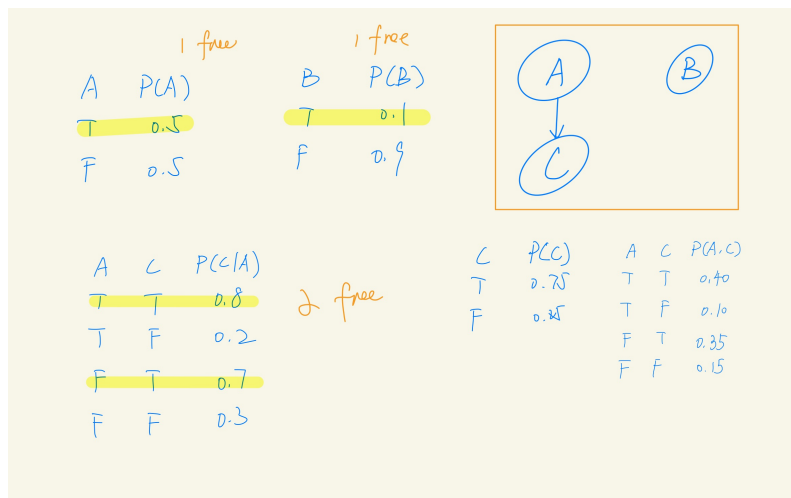 1 free
A P(A)
T 0.5
F 0.5
1 free
B P(B)
T 0.1
F 0.9
A
B
C
A C P(C|A)
T T 0.8
T F 0.2
F T 0.7
F F 0.3
2 free
C P(C)
T 0.75
F 0.25
A C P(A,C)
T T 0.40
T F 0.10
F T 0.35
F F 0.15